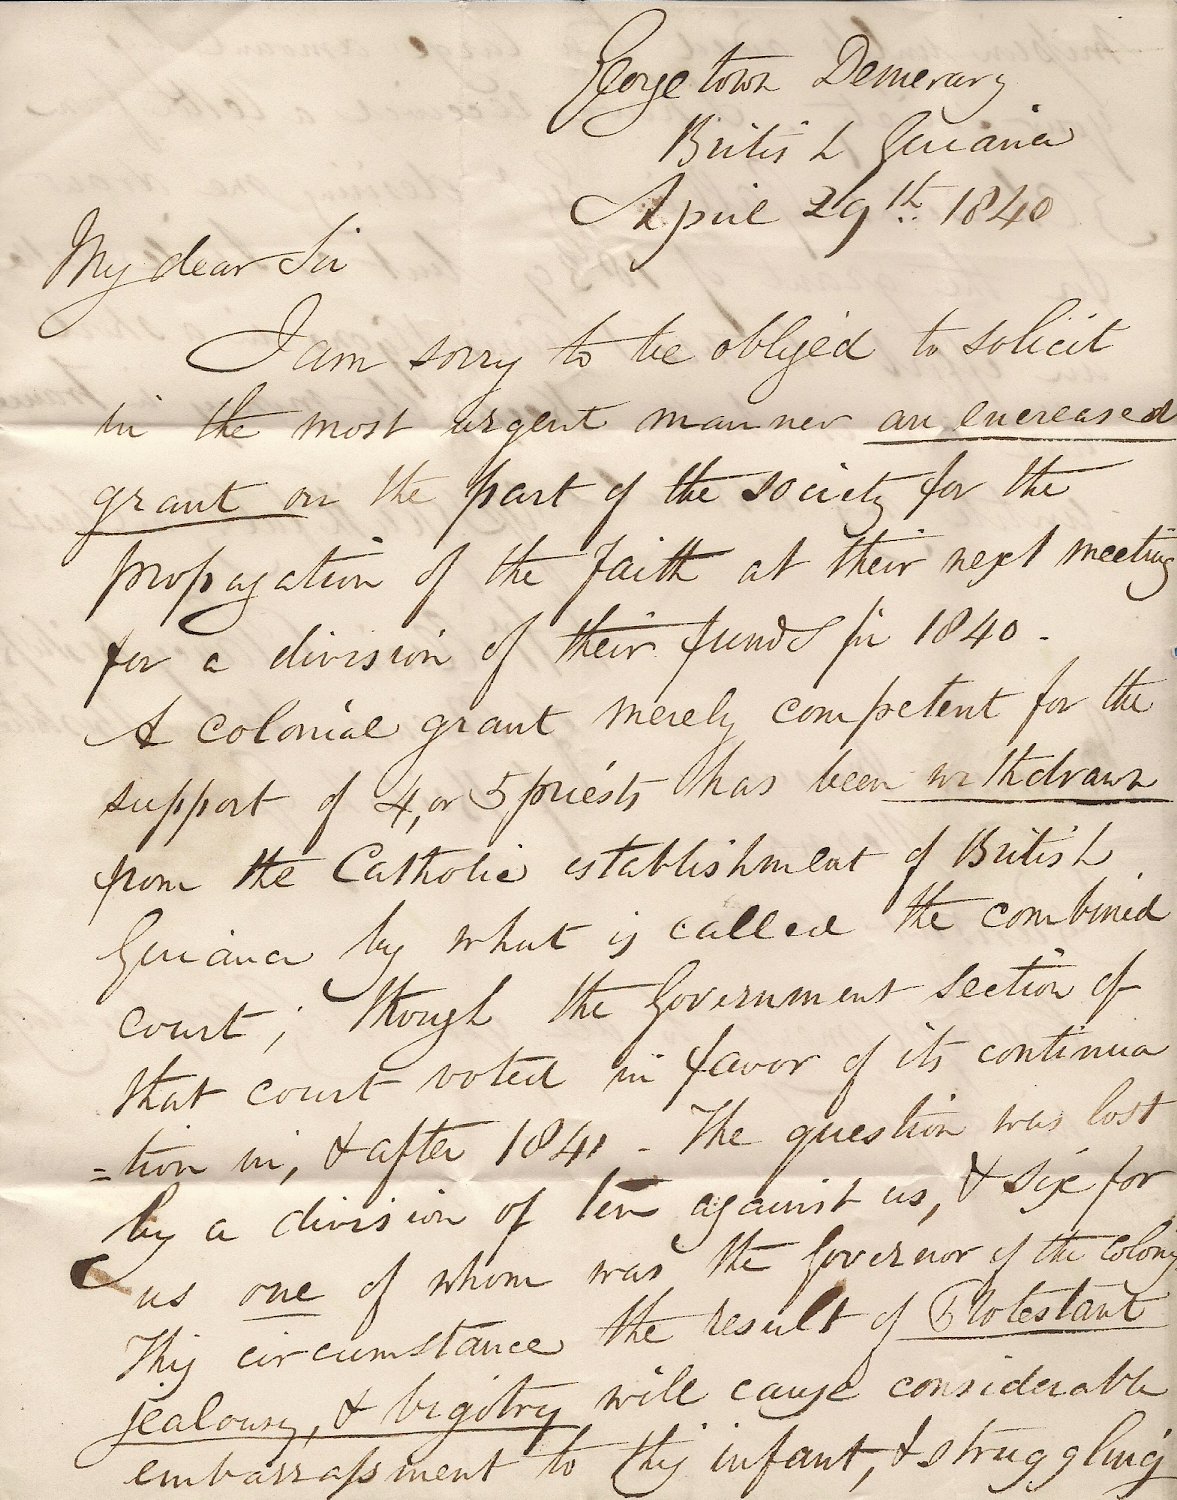 Georgetown Demerary
British Guiana
April 29th 1840
My dear Sir
I am sorry to be obliged to solicit
in the most urgent manner an encreased
grant on the part of the society for the
propagation of the Faith at their next meeting
for a division of their funds for 1840 -
A colonial grant merely competent for the
support of 4, or 5 priests has been withdrawn
from the Catholic establishment of British
Guiana by what is called the combined
court; though the Government section of
that court voted in favor of its continua
=tion in, & after 1841 - The question was lost
by a division of ten against us, & six for
us one of whom was the Governor of the Colony
This circumstance the result of Protestant
jealousy, & bigotry will cause considerable
embarrassment to this infant, & struggling